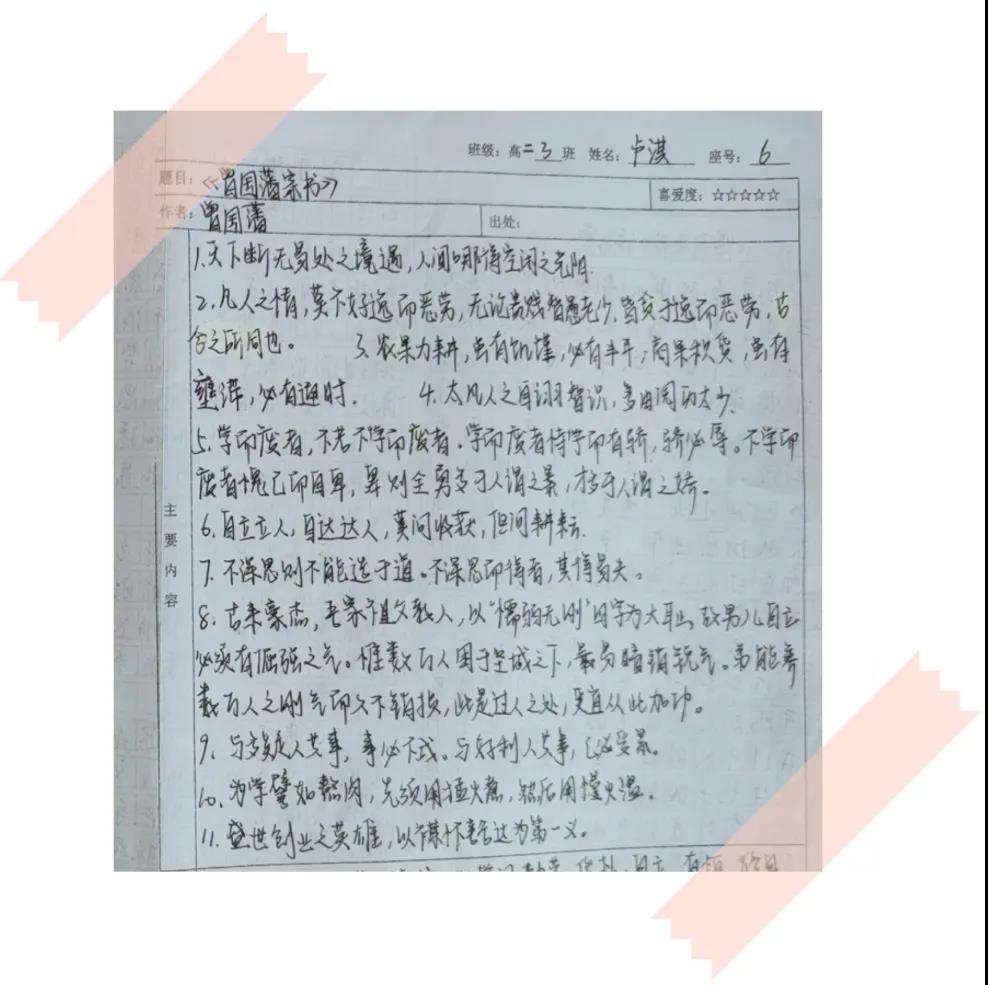 班级：高二3班 姓名：卢淇 座号：6
题目：《曾国藩家书》
喜爱度：☆☆☆☆☆
作者：曾国藩
出处：
主要内容
1.天下断无易处之境遇，人间哪得空闲之光阴.
2.凡人之情，莫不好逸而恶劳，无论贵贱智愚老少，皆贪于逸而恶劳，古
今之所同也。 3.农果力耕，虽有饥馑，必有丰年；商果积货，虽有
壅滞，必有通时. 4.大凡人之自诩智识，多由阅历太少.
5.学而废者，不若不学而废者。学而废者恃学而有骄，骄必辱。不学而
废者愧己而自卑，卑则全勇多于人谓之暴，才多于人谓之娇。
6.自立立人，自达达人，莫问收获，但问耕耘.
7.不深思则不能造于道。不深思而得者，其得易失。
8.古来豪杰，吾家祖父教人，以“懦弱无刚”四字为大耻，故男儿自立
必须有倔强之气。惟数万人困于坚城之下，最易暗销锐气。弟能养
数万人之刚气而久不销损，此是过人之处，更宜从此加功。
9.与多疑人共事，事必不成。与好利人共事，己必受累。
10.为学譬如熬肉，先须用猛火煮，然后用慢火温。
11.盛世创业之英雄，以襟怀豁达为第一义。